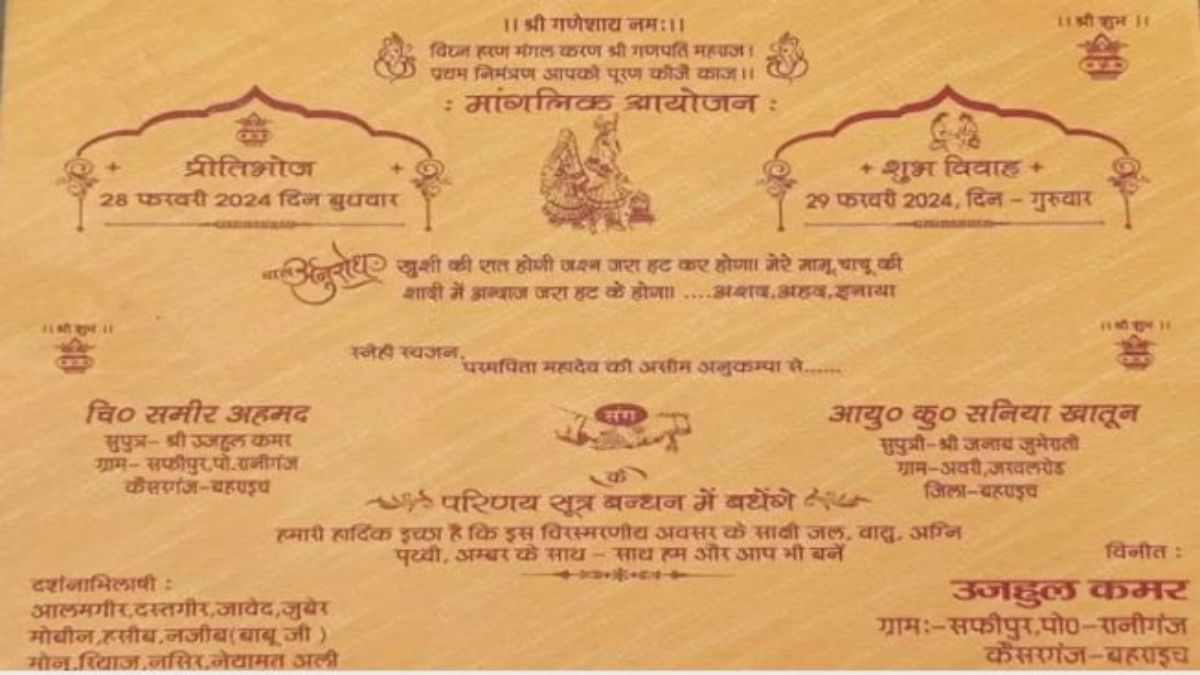 ।। श्री गणेशाय नमः।।
।। श्री शुभ ।।
विघ्न हरण मंगल करण श्री गणपति महराज।
प्रथम निमंत्रण आपको पूरण कीजै काज।।
: मांगलिक आयोजन :
प्रीतिभोज
28 फरवरी 2024 दिन बुधवार
शुभ विवाह
29 फरवरी 2024, दिन – गुरुवार
बाल अनुरोध
खुशी की रात होगी जश्न जरा हट कर होगा। मेरे मामू,चाचू की
शादी में अन्दाज जरा हट के होगा। ....अशद,अहद,इनाया
।। श्री शुभ ।।
।। श्री शुभ ।।
स्नेही स्वजन,
परमपिता महादेव की असीम अनुकम्पा से......
चि० समीर अहमद
सुपुत्र– श्री उजहुल कमर
ग्राम– सफीपुर,पो.रानीगंज
कैसरगंज–बहराइच
संग
आयु० कु० सनिया खातून
सुपुत्री–श्री जनाब जुमेराती
ग्राम–अवरी,जरवलरोड
जिला–बहराइच
के
परिणय सूत्र बन्धन में बधेंगे
हमारी हार्दिक इच्छा है कि इस चिरस्मरणीय अवसर के साक्षी जल, वायु, अग्नि
पृथ्वी, अम्बर के साथ – साथ हम और आप भी बनें
दर्शनाभिलाषी :
आलमगीर,दस्तगीर,जावेद,जुबेर
मोबीन,हसीब,नजीब(बाबू जी )
मोनू,रियाज,नसिर,नेयामत अली
विनीत :
उजहुल कमर
ग्राम:–सफीपुर,पो0–रानीगंज
कैसरगंज–बहराइच